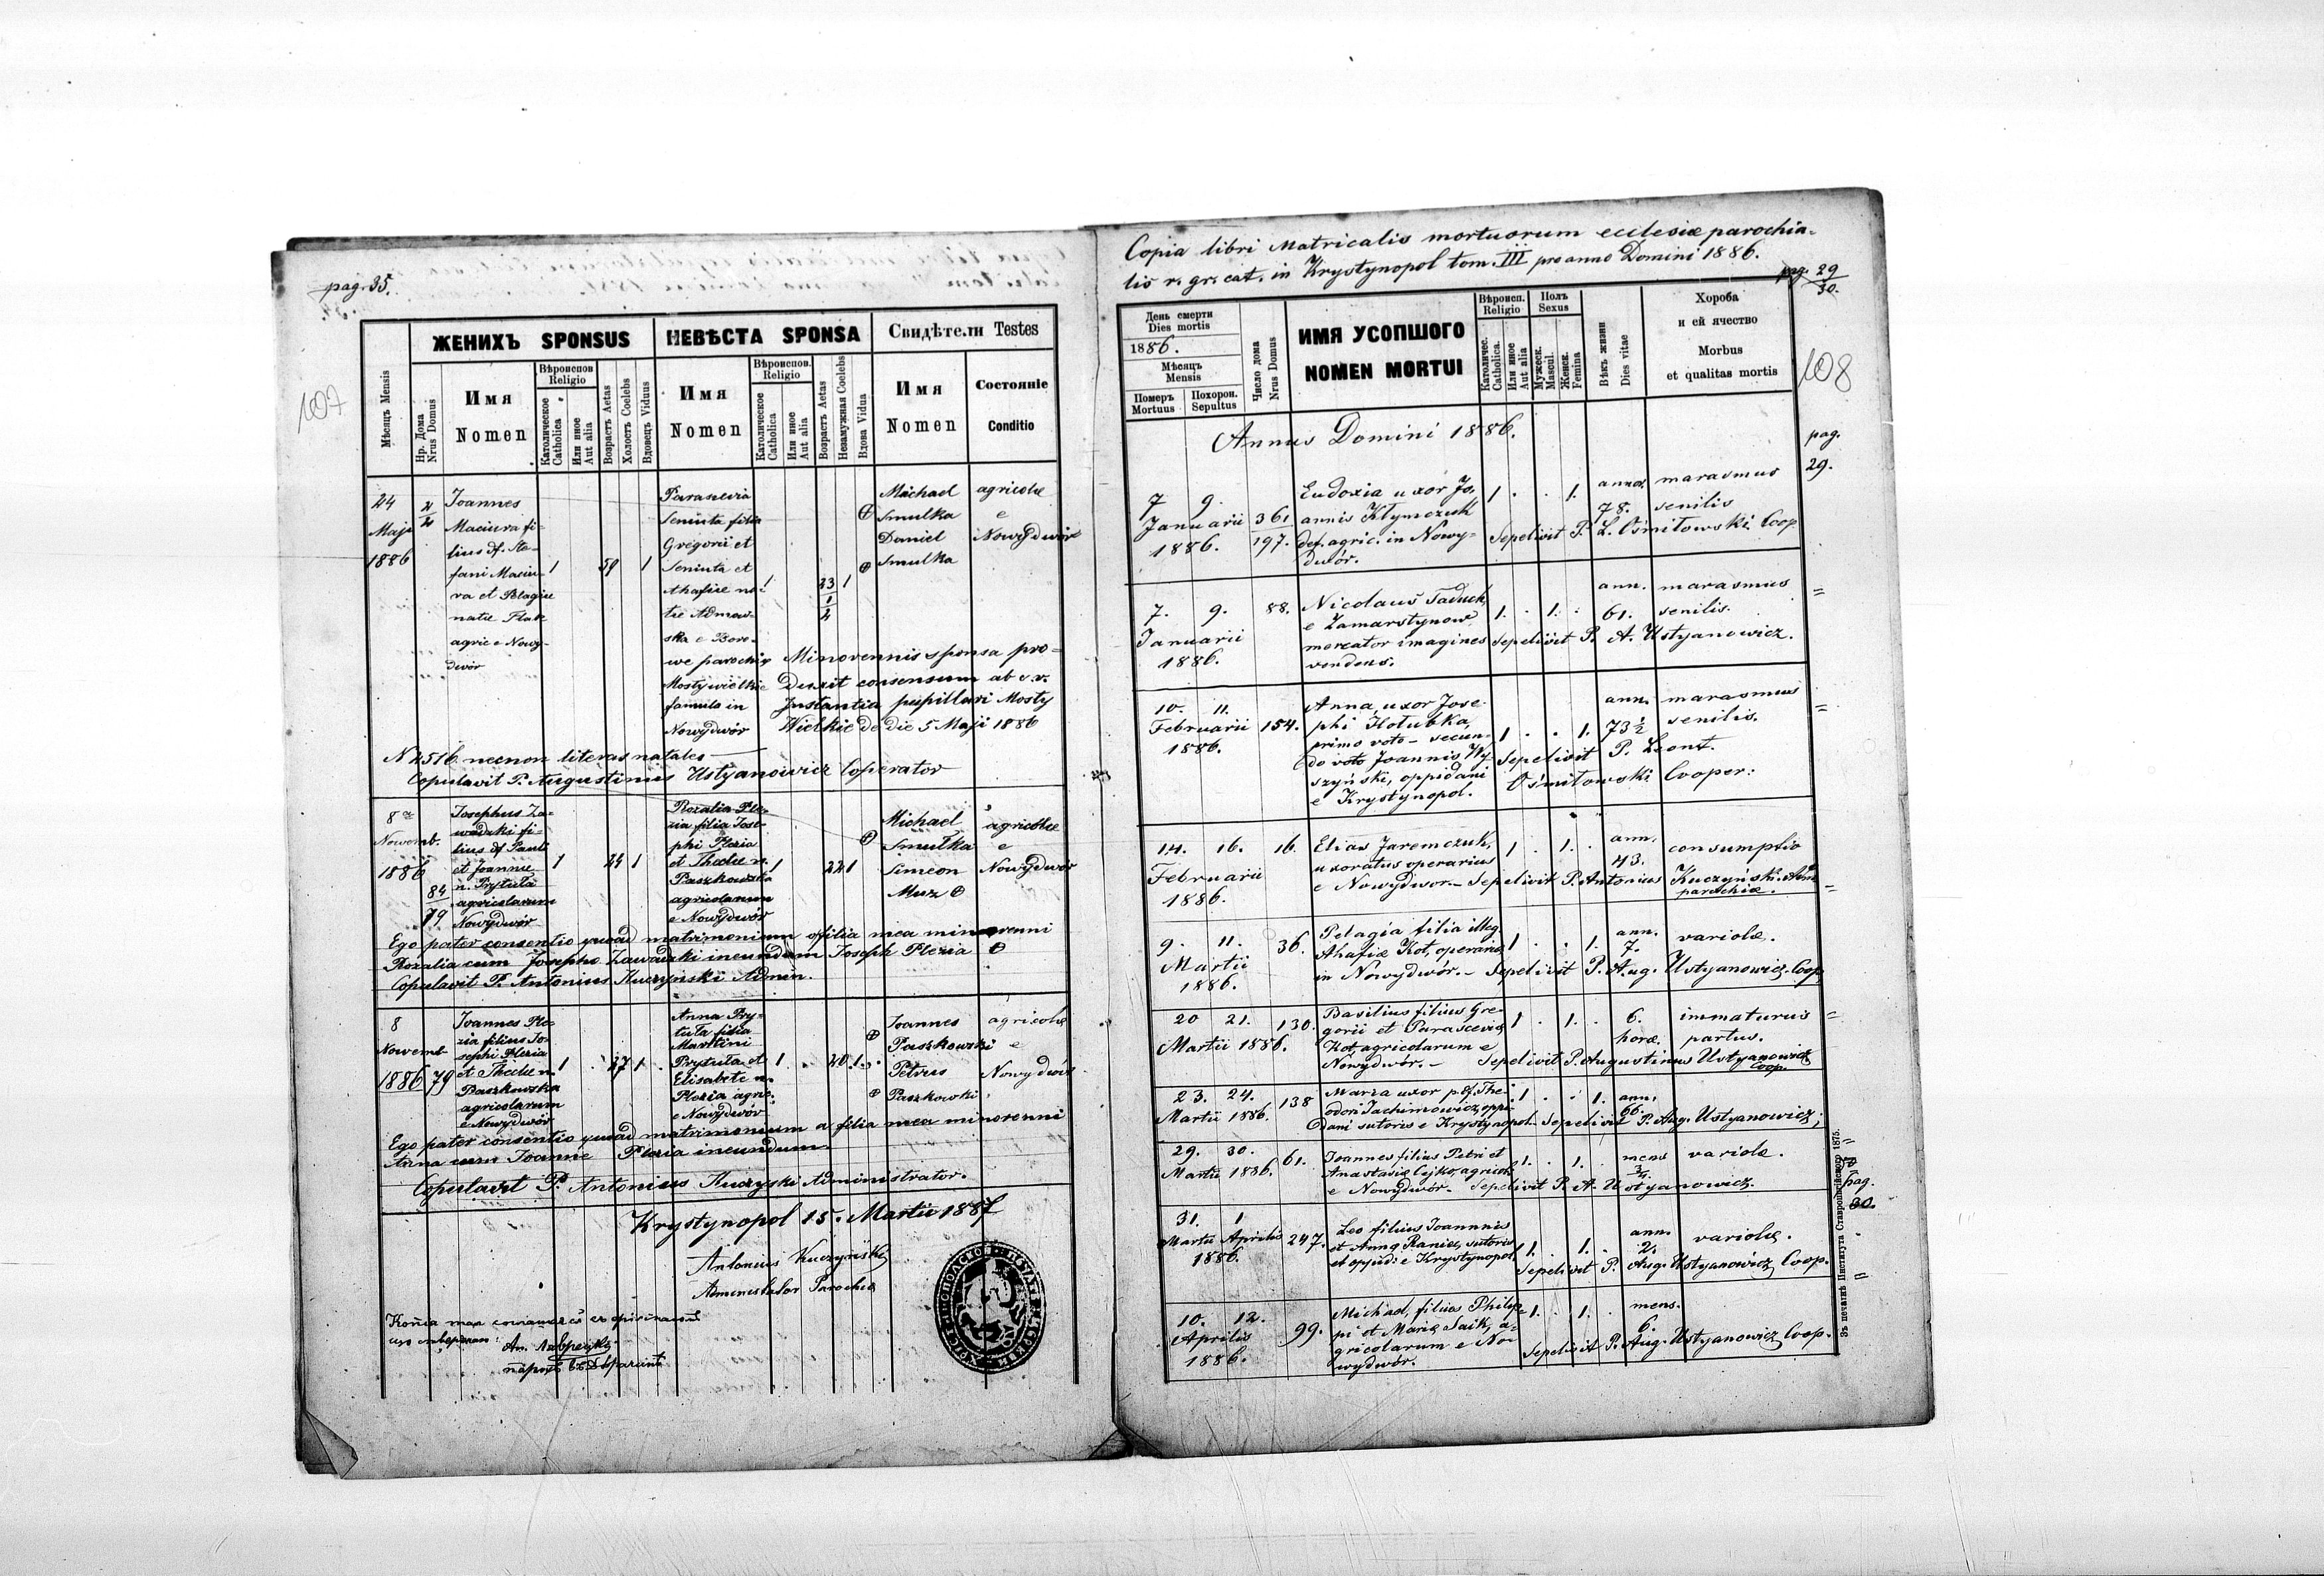 pag. 35.
107
ЖЕНИХЪ SPONSUS
НЕВѢСТА SPONSA
Свидѣтели Testes
Мѣсяцъ Mensis
Нр. Дома
Nrus Domus
Имя
Nomen
Вѣроиспов
Religio
Католическое
Catholica
Или иное
Aut alia
Возрастъ Aetas
Холостъ Coelebs
Вдовецъ Viduus
Имя
Nomen
Вѣроиспов.
Religio
Католическое
Catholica
Или иное
Aut alia
Возрастъ Aetas
Незамужная Coelebs
Вдова Vidua
Имя
Nomen
Состояніе
Conditio
24
Maji
1886
Joannes
Maciura fi-
lius df. Ste-
fani Maciu-
ra et Pelagiae
natae Flak
agric e Nowy-
dwór
1
50
1
Parascevia
Seniuta filia
Gregorii et
Seniuta et
Ahafiae na-
tae Admow-
ska e Bore-
we parochiae
Mosty wielkie
famula in
Nowydwór
1
23
1
Michael
Smulka
Daniel
Smulka
agricolae
e
Nowydwór
Minorennis sponsa pro-
Duxit consensum ab c. r.
Instantia pupillari Mosty
Wielkie de die 5 Maji 1886
N 2516 necnon literas natales
Copulavit P. Augustinus Ustyanowicz Coperator
8
Novemb.
1886
84
79
Josephus Za-
wadzki fi-
lius df Pauli
et Joannae
n. Prytuła
agricolarum
Nowydwór
1
24
1
Rozalia Ple-
zia filia Jose-
phi Plezia
et Theclae n.
Paszkowska
agricolarum
e Nowydwór
1
22
1
Michael
Smulka
Simeon
Muz
agricolae
e
Nowydwór
Ego pater consentio quoad matrimonium a filia mea minorenni
Rozalia cum Josepho Zawadzki ineundum Joseph Plezia
Copulavit P. Antonius Kuczyński Admin.
8
Novemb
1886
79
Joannes Ple-
zia filius Jo-
sephi Plezia
et Theclae n.
Paszkowska
agricolarum
e Nowydwór
1
27
1
Anna Pry-
tuła filia
Martini
Prytuła et
Elisabete n.
Plezia agric.
e Nowydwór
1
20
1
Joannes
Paszkowski
Petrus
Paszkowski
agricolae
e
Nowydwór
Ego pater consentio quoad matrimonium a filia mea minorenni
Anna cum Joanne Plezia ineundum
Copulavit P. Antonius Kuczyski Administrator.
Krystynopol 15. Martii 1887
Antonius Kuczyński
Administrator Parochiae
Copia libri Matricalis mortuorum ecclesiae parochia-
lis r. gr. cat. in Krystynopol tom. III pro anno Domini 1886.
pag. 29
30.
108
День смерти
Dies mortis
1886.
Мѣсяцъ
Mensis
Померъ
Mortuus
Похорон.
Sepultus
Число дома
Nrus Domus
ИМЯ УСОПШОГО
NOMEN MORTUI
Вѣроисп.
Religio
Католичес.
Catholica.
Или иное
Aut alia
Полъ
Sexus
Мужеск.
Mascul.
Женск.
Femina
Вѣкъ жизни
Dies vitae
Хороба
и ей ячество
Morbus
et qualitas mortis
Annus Domini 1886.
pag.
29.
7 9.
Januarii
1886.
361
197.
Eudoxia uxor Jo-
annis Kłymczuk
def. agric. in Nowy-
dwór.
1 . . 1.
annos.
78.
marasmus
senilis
Sepelivit P. L. Ośmiłowski Coop
7. 9.
Januarii
1886.
88.
Nicolaus Taduch,
e Zamarstynow
mercator imagines
vendens.
1. . 1. .
ann.
61.
marasmus
senilis.
Sepelivit P. A. Ustyanowicz.
10. 11.
Februarii
1886.
154.
Anna, uxor Jose-
phi Hołubka,
primo voto - secun-
do voto Joannis Wy-
szyński, oppidani
e Krystynopol.
1 . . 1.
ann.
73 1/2
marasmus
senilis.
Sepelivit P. Leont.
Ośmiłowski Cooper:
14. 16.
Februarii
1886.
16.
Elias Jaremczuk,
uxoratus operarius
e Nowydwor. - Sepelivit P. Antonius Kuczyński. Adm.
parochiae.
1 . 1. .
ann.
43.
consumptio
9. 11.
Martii
1886.
36.
Pelagia filia illeg.
Ahafiae Kot, operariae
in Nowydwór. - Sepelivit P. Aug. Ustyanowicz. Coop.
1 . . 1.
ann.
7.
variolae.
20 21.
Martii 1886.
130.
Basilius filius Gre-
gorii et Parasceviae
Kot, agricolarum e
Nowydwór. - Sepelivit P. Augustinus Ustyanowicz
Coop.
1 . 1. .
6.
horae.
immaturus
partus.
23. 24.
Martii 1886.
138
Maria uxor p. df. The-
odori Jachimowicz, oppi-
dani sutoris e Krystynopol. Sepelivit P. Aug. Ustyanowicz;
1 . . 1.
ann.
66.
29. 30.
Martii 1886.
61.
Joannes filius Petri et
Anastasiae Cejko, agricol.
e Nowydwór. Sepelivit P. A. Ustyanowicz.
1. . 1. .
mens
3/4.
variolae.
pag.
30.
31. 1
Martii Aprilis
1886.
247.
Leo filius Joannis
et Annae Rania, sutoris
et oppid: e Krystynopol.
1. . 1. .
ann.
2.
variolae.
Sepelivit P. Aug. Ustyanowicz, Coop.
10. 12.
Aprilis
1886.
99.
Michael, filius Philip-
pi et Mariae Saik, a-
gricolarum e No-
wydwór.
1. . 1. .
mens.
6.
Sepelivit P. Aug. Ustyanowicz Coop.
Зъ печатнѣ Института Ставропигійского 1875.